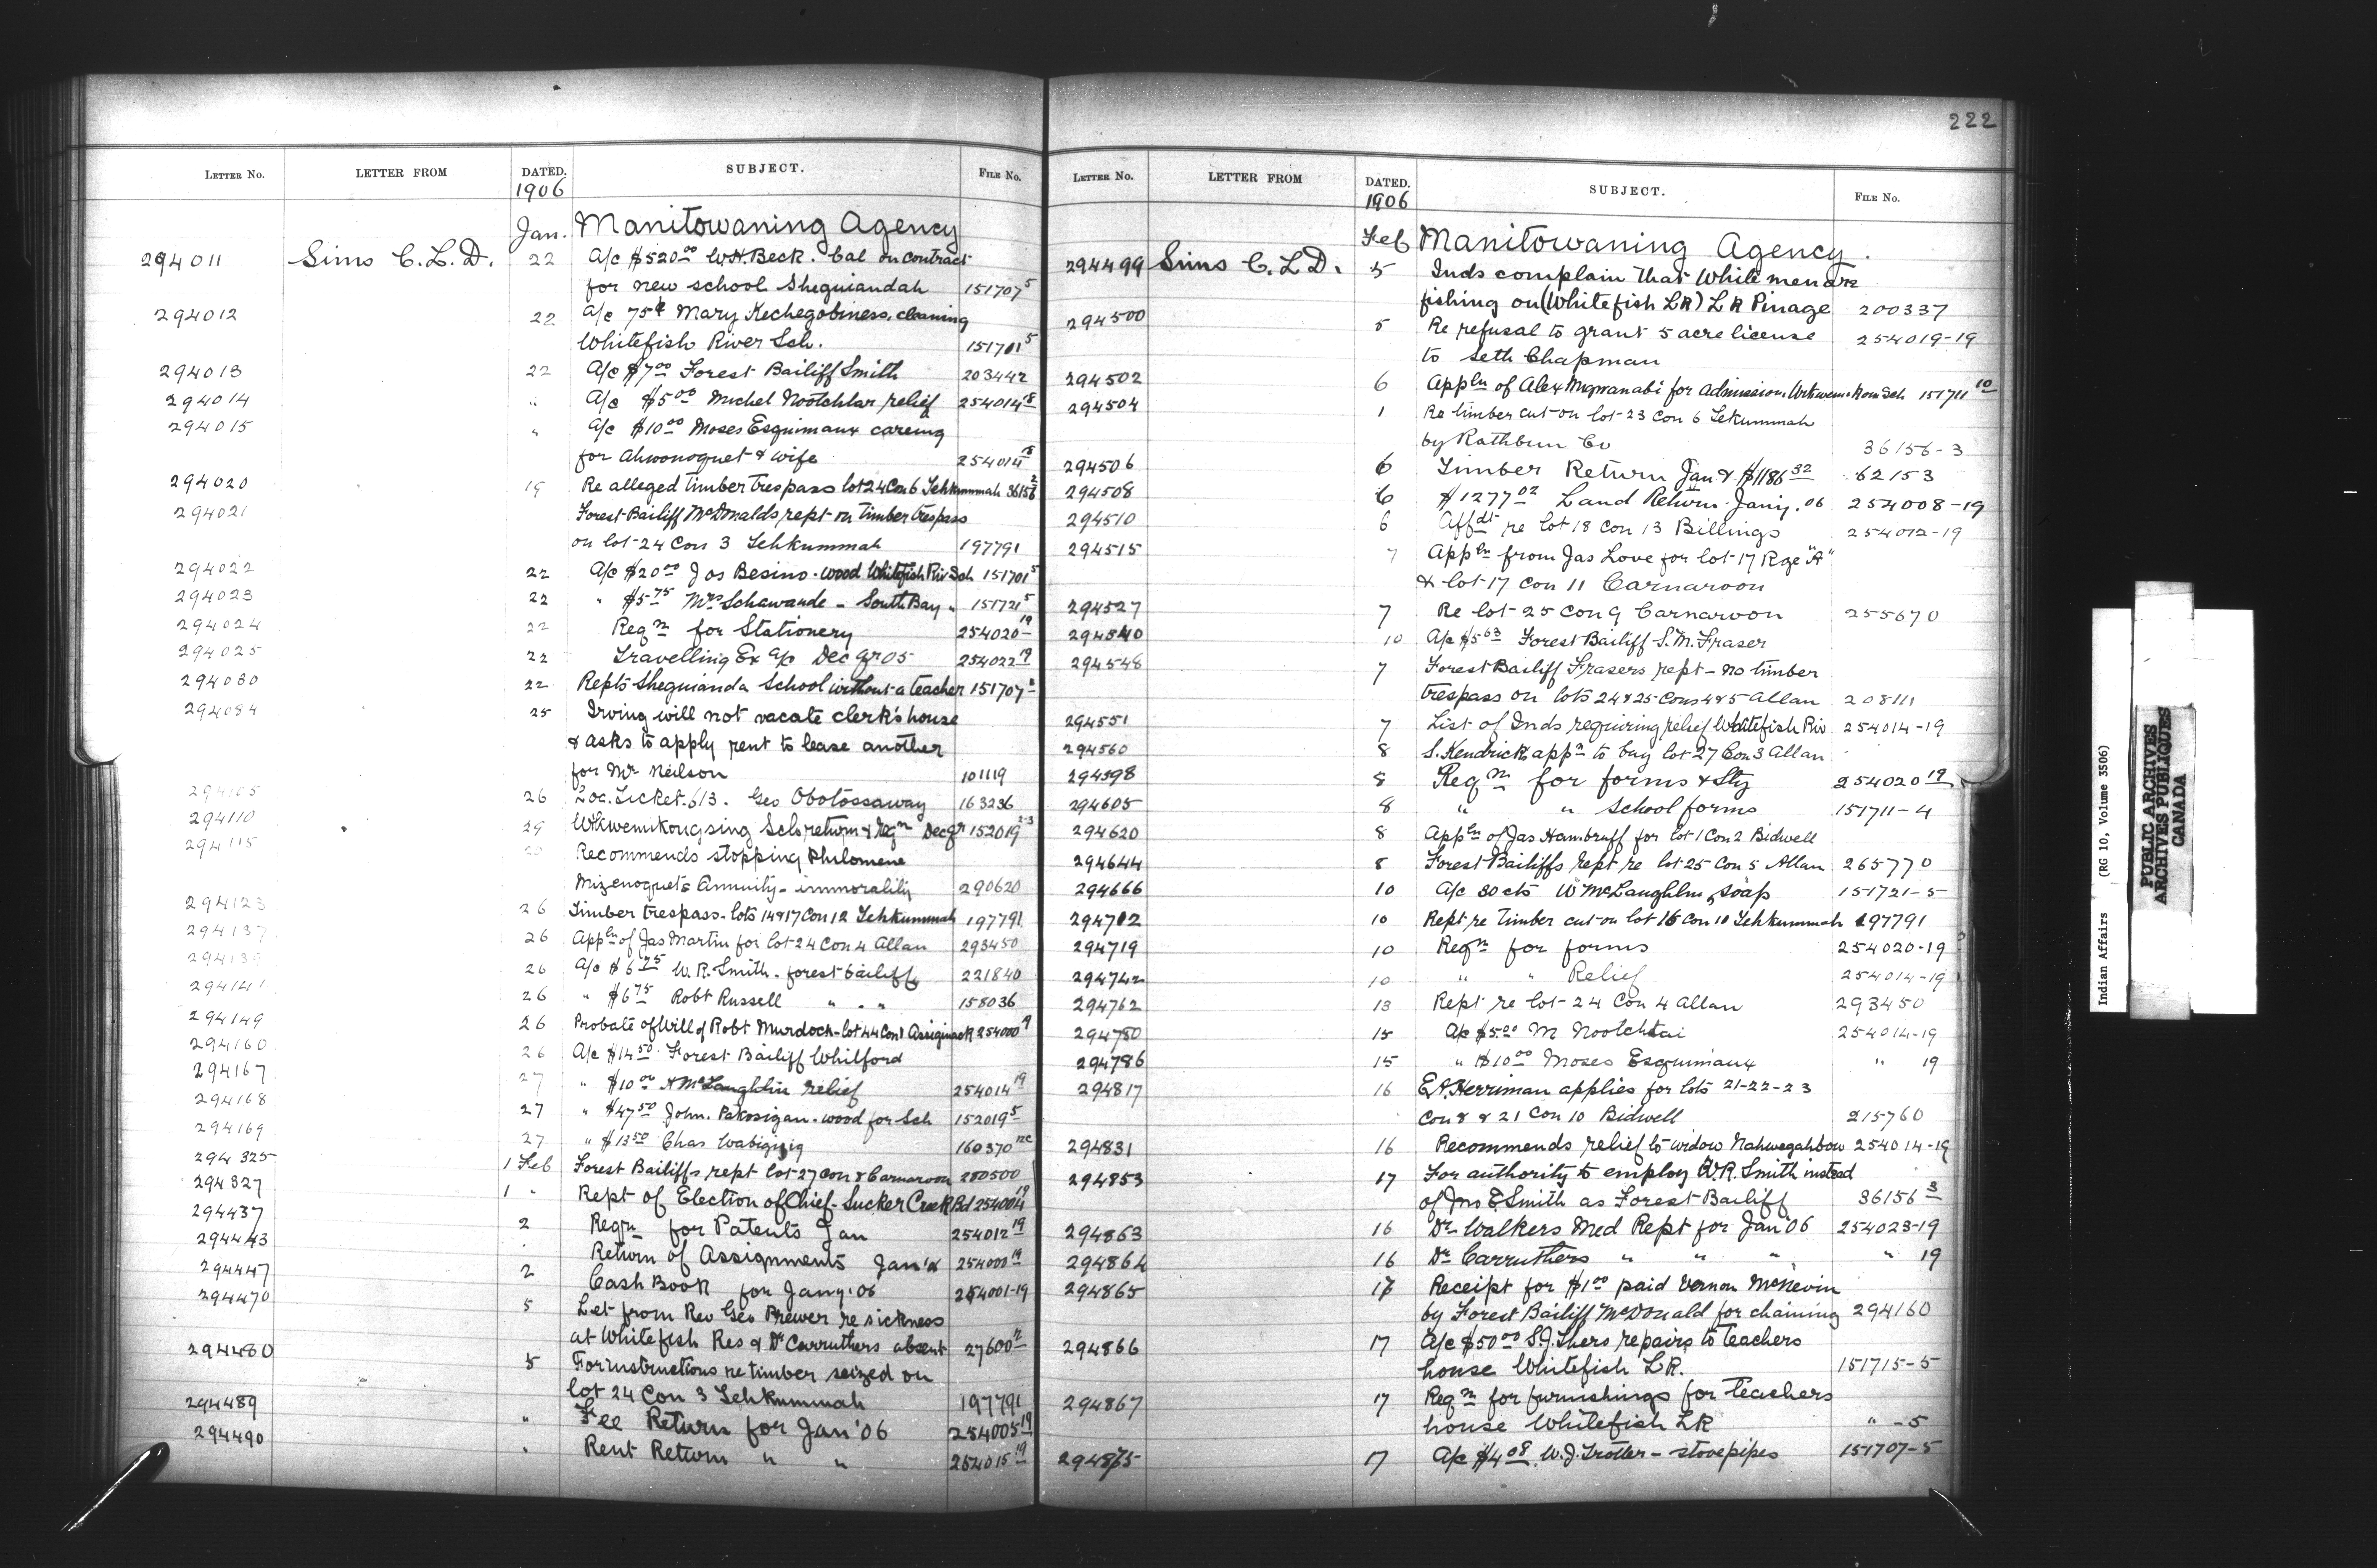 222
LETTER NO. LETTER FROM DATED. SUBJECT. FILE NO.
1906
Jan. Manitowaning Agency
294011 Sims C. L. D. 22 A/c $520.00 W.H. Beck. bal on contract
for new school Sheguiandah 151707 5
294012 22 A/c 75¢ Mary Kechegobiness. cleaning
Whitefish River Sch. 151701 5
294013 22 A/c $7.00 Forest Bailiff Smith 203442
294014 " A/c $5.00 Michel Nootchtai relief 254014 18
294015 " A/c $10.00 Moses Esquimaux careing
for Ahwonoquet & wife 254014 18
294020 19 Re alleged timber trespass lot 24 Con 6 Tehkummah 36156 2
294021 Forest Bailiff McDonalds rept on timber trespass
on lot 24 Con 3 Tehkummah 197791
294022 22 A/c $20.00 Jos Besino. wood Whitefish Riv Sch 151701 5
294023 22 " $5.75 Mrs Schawande - South Bay " 151721 5
294024 22 Reqn for Stationery 254020 19
294025 22 Travelling Ex a/c Dec qr 05 254022 19
294030 22 Repts Sheguianda School without a teacher 151707
294084 25 Irving will not vacate clerk's house
& asks to apply rent to lease another
for Mr Neilson 101119
294105 26 Loc. Ticket. 613. Geo Obotossaway 163236
294110 29 Wikwemikongsing Schs return & reqn Dec qr 152019 2-3
294115 Recommends stopping Philomene
Mizenoquets Annuity - immorality 290620
294123 26 Timber trespass - lots 14 & 17 Con 12 Tehkummah 197791
294137 26 Appln of Jas Martin for lot 24 Con 4 Allan 293450
294139 26 A/c $6.25 W. R. Smith - forest bailiff 221840
294141 26 " $6.75 Robt Russell " " " 158036
294149 26 Probate of Will of Robt Murdoch - lot 44 Con 1 Assiginack 254000 19
294160 26 A/c $14.50 Forest Bailiff Whilford
294167 27 " $10.00 A McLaughlin relief 254014 19
294168 27 " $47.50 John. Pakosigan. wood for Sch 152019 5
294169 27 " $13.50 Chas Wabigijig 160370
294325 1 Feb Forest Bailiffs rept lot 27 Con 8 Carnarvon 280500
294327 1 " Rept of Election of Chief - Sucker Creek Bd 254004 19
294437 2 Reqn for Patents Jan 254012 19
294443 Return of Assignments Jan'06 254000 19
294447 2 Cash Book for Jany '06 254001-19
294470 5 Let from Rev Geo Brewer re sickness
at Whitefish Res & Dr Carruthers absent 27600 2
294480 5 For instructions re timber seized on
lot 24 Con 3 Tehkummah 197791
294489 " Fee Return for Jan '06 254005 19
294490 " Rent Return " " 254015 19
LETTER NO. LETTER FROM DATED. SUBJECT. FILE NO.
1906
Feb Manitowaning Agency.
294499 Sims C. L. D. 5 Inds complain that White men are
fishing on (Whitefish LR) L R Pinage 200337
294500 5 Re refusal to grant 5 acre license 254019-19
to Seth Chapman
294502 6 Appln of Alex Migwanabi for Admission Wikwem. Rom Sch 151711 10
294504 1 Re timber cut on lot 23 Con 6 Tekummah
by Rathbun Co 36156-3
294506 6 Timber Return Jan & $1186.32 62153
294508 6 $1277.02 Land Return Jany. 06 254008-19
294510 6 Affdt re lot 18 Con 13 Billings 254012-19
294515 7 Appln from Jas Love for lot 17 Rge "A"
& lot 17 Con 11 Carnarvon
294527 7 Re lot 25 Con 9 Carnarvon 255670
294540 10 A/c $5.63 Forest Bailiff S. M. Fraser
294548 7 Forest Bailiff Frasers rept - no timber
trespass on lots 24 & 25 Cons 4 & 5 Allan 208111
294551 7 List of Inds requiring relief Whitefish Riv 254014-19
294560 8 S. Kendrick appn to buy lot 27 Con 3 Allan
294598 8 Reqn for forms & Sty 254020 19
294605 8 " " School forms 151711-4
294620 8 Appln of Jas Hambruff for lot 1 Con 2 Bidwell
294644 8 Forest Bailiffs rept re lot 25 Con 5 Allan 265770
294666 10 A/c 30 cts W McLaughlin, soap 151721-5
294712 10 Rept re timber cut on lot 16 Con 10 Tehkummah 197791
294719 10 Reqn for forms 254020-19
294742 10 " " Relief 254014-19
294762 13 Rept re lot 24 Con 4 Allan 293450
294780 15 A/c $5.00 M Nootchtai 254014-19
294786 15 " $10.00 Moses Esquimaux " 19
294817 16 E.A. Herriman applies for lots 21-22-23
Con 8 & 21 Con 10 Bidwell 215760
294831 16 Recommends relief to widow Nahwegahbow 254014-19
294853 17 For authority to employ W. R. Smith instead
of Jno E Smith as Forest Bailiff 36156 3
294863 16 Dr Walkers Med Rept for Jan '06 254023-19
294864 16 Dr Carruthers " " " " 19
294865 17 Receipt for $1.00 paid Vernon McNevin
by Forest Bailiff McDonald for chaining 294160
294866 17 A/c $50.00 S. J. Shers repairs to teachers
house Whitefish L R. 151715-5
294867 17 Reqn for furnishings for teachers
house Whitefish LR " -5
294875 17 A/c $4.08 W. J. Trotter - stovepipes 151707-5
Indian Affairs (RG 10, Volume 3506)
PUBLIC ARCHIVES
ARCHIVES PUBLIQUES
CANADA